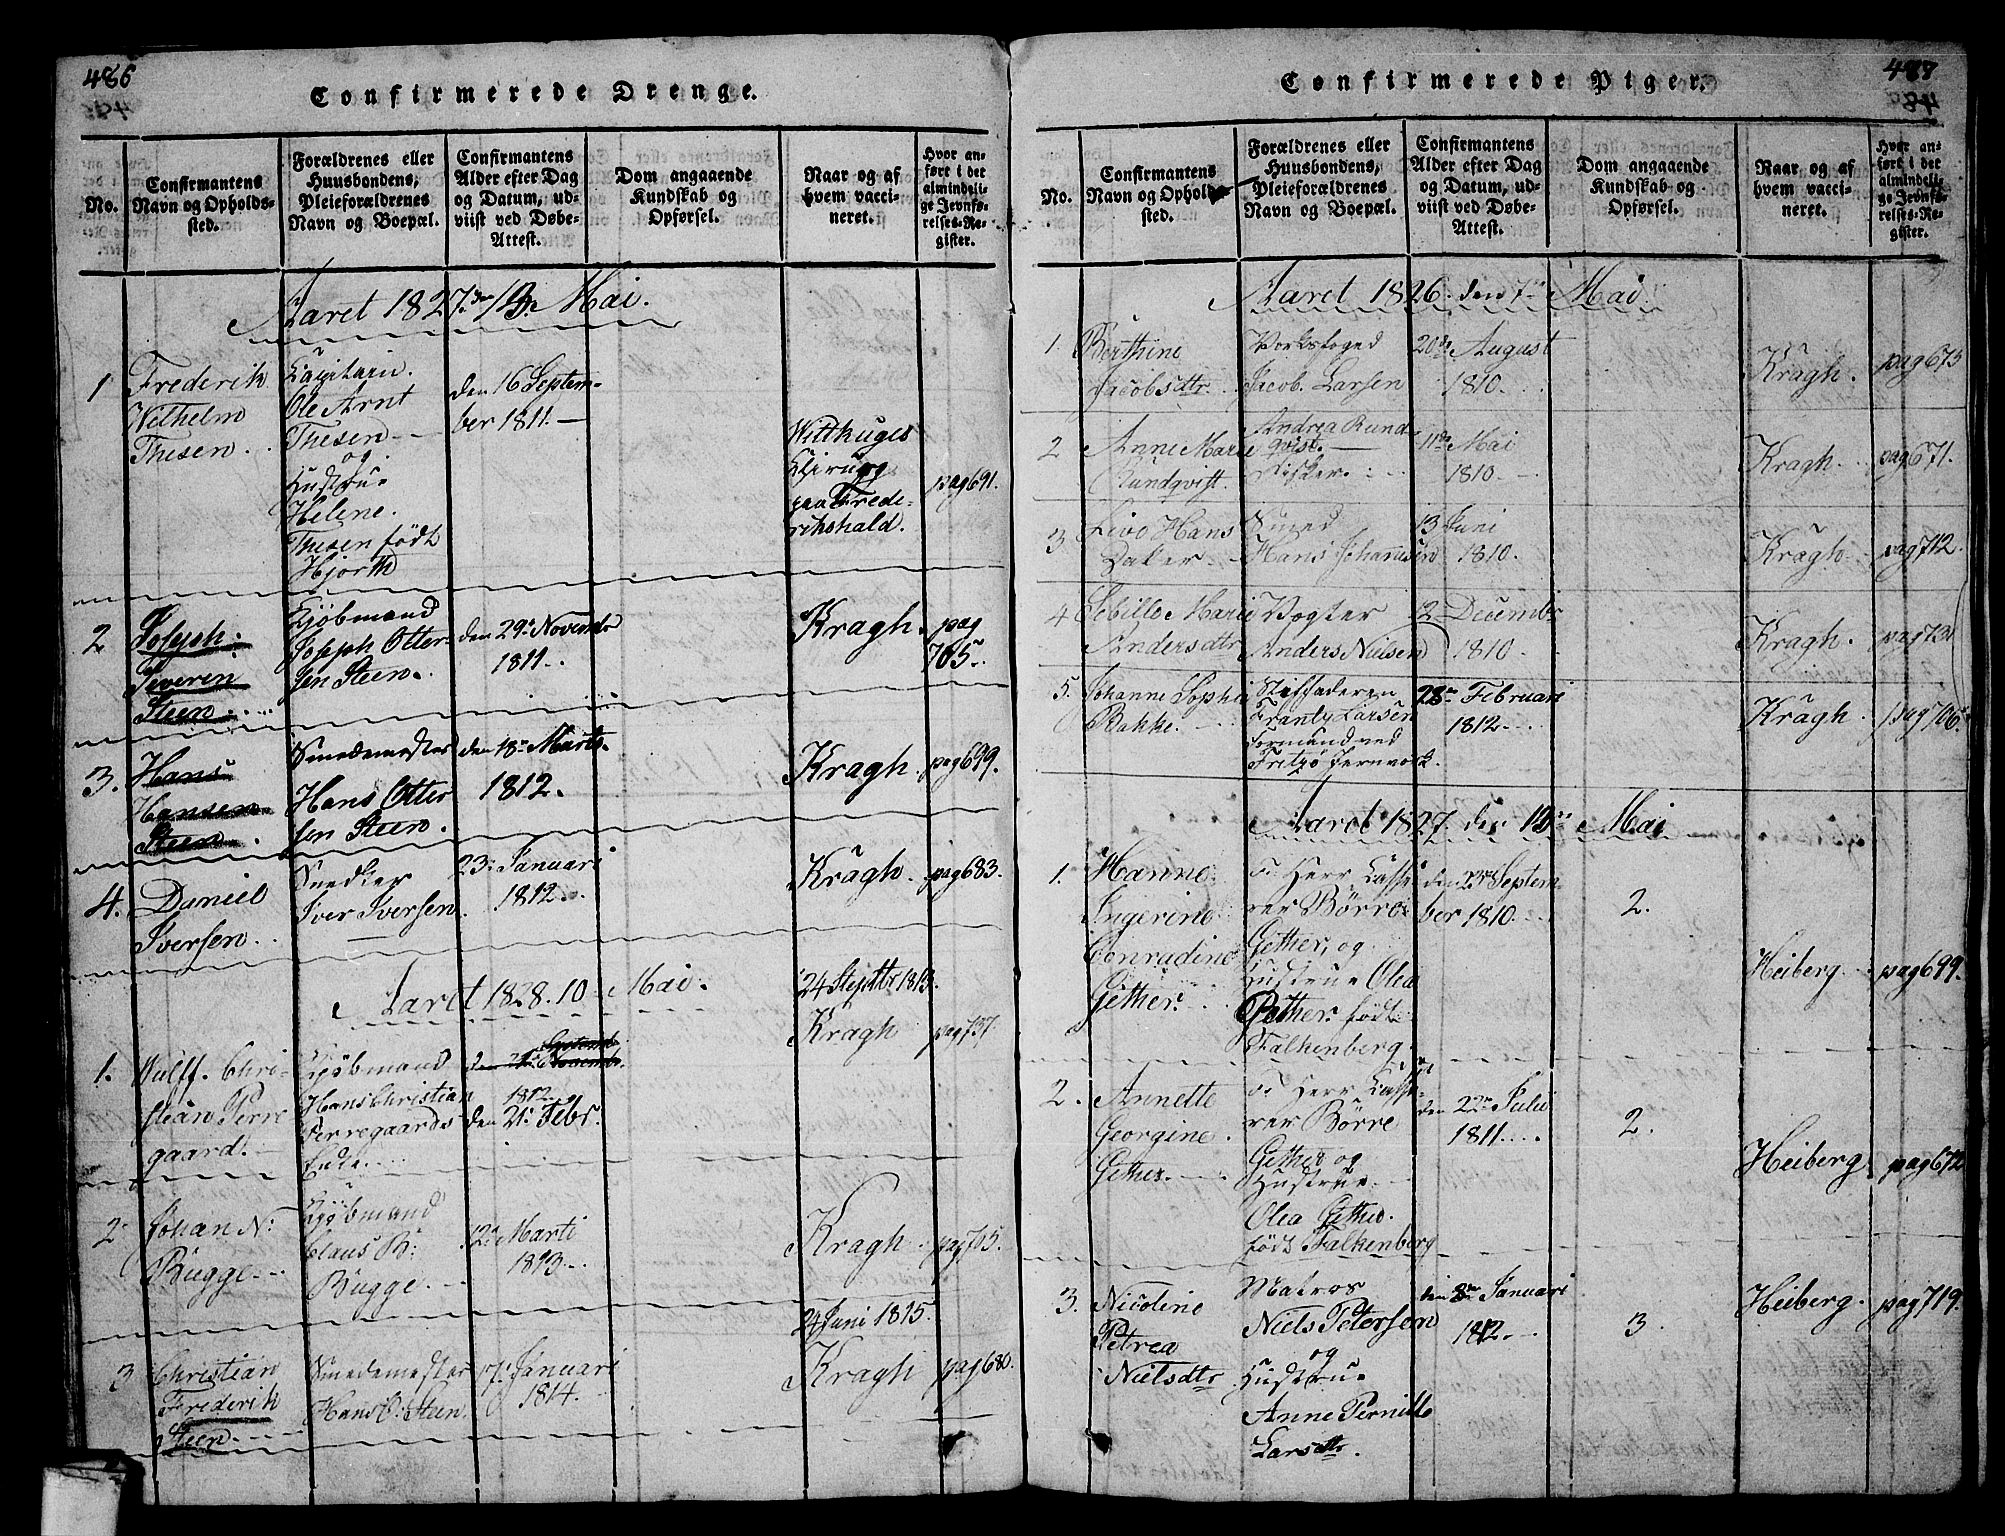 486
Confirmerede Drenge.
No.
Confirmantens
Navn og Opholds-
sted.
Forældrenes eller
Huusbondens,
Pleieforældrenes
Navn og Boepæl.
Confirmantens
Alder efter Dag
og Datum, ud-
viist ved Døbe-
Attest.
Dom angaaende
Kundskab og
Opførsel.
Naar og af
hvem vacci-
neret.
Hvor an-
ført i det
almindeli-
ge Jevnfø-
relses-Re-
gister.
Aaret 1827. den 13 Mai.
1
Frederik
Wilhelm
Thesen.
Capitain
Ole Arnt
Thesen
og
Hustrue
Helene
Thesen født
Hjorth
den 16 Septem-
ber 1811.
Chirurg
paa Frede-
rikshald.
pag 691.
2
Joseph
Severin
Steen.
Kjøbmand
Joseph Otter-
sen Steen.
den 29. Novembr
1811.
Kragh.
pag
705.
3.
Hans
Hansen
Steen.
Smedemester
Hans Otter
sen Steen.
den 18 Marts.
1812.
Kragh.
pag 699.
4.
Daniel
Iversen.
Snedker
Iver Iversen.
23. Januari
1812.
Kragh.
pag 683.
Aaret 1828. 10 Mai.
1.
Wulff. Chri-
stian Ferre
gaard.
Kjøbmand
Hans Christian
Ferregaards
Enke.
1812.
den 21. Febr.
24 Septbr 1813.
Kragh
pag 737.
2
Johan N:
Bugge.
Kjøbmand
Claus B:
Bugge.
12. Marti
1813.
Kragh.
pag 705.
3
Christian
Frederik
Steen
Smedemester
Hans O. Steen.
17. Januari
1814.
24 Juni 1815.
Kragh
pag 680.
487
Confirmerede Piger.
No.
Confirmantens
Navn og Opholds-
sted.
Forældrenes eller
Huusbondens,
Pleieforældrenes
Navn og Boepæl.
Confirmantens
Alder efter Dag
og Datum, ud-
viist ved Døbe-
Attest.
Dom angaaende
Kundskab og
Opførsel.
Naar og af
hvem vacci-
neret.
Hvor an-
ført i det
almindeli-
ge Jevnfø-
relses-Re-
gister.
Aaret 1826. den 7 Mai
1.
Berthine
Jacobsdtr.
Værksfoged
Jacob Larsen
20 August
1810.
Kragh.
pag 675
2
Anne Marie
Rundqvist.
Andrea Rund-
qvist.
11 Mai
1810.
Kragh.
pag 671.
3
Hans
Smed
Hans Johansen
13 Juni
1810.
Kragh.
pag 712.
4
Sebille Marie
Andersdtr
Vogter
Anders Nielsen
12 Decembr
1810.
Kragh.
pag 73
5.
Johanne Sophie
Bakke.
Stiffaderen
Frantz Larsen
Formand ved
Fritzø Jernværk.
28 Februari
1812.
Kragh.
pag 706.
Aaret 1827. den 13 Mai
1.
Hanne
Ingerine
Conradine
Gether.
Herr Casse
rer Børre
Gether, og
Hustrue Olea
Gether født
Falkenberg.
den 23 Septem
ber 1810.
2.
Heiberg.
pag 699.
2.
Annette
Georgine
Gether.
Herr Casse-
rer Børre
Gether og
Hustrue
Olea Gether
født Falkenberg
den 22 Juli
1811.
2.
Heiberg.
pag 672
3.
Nicoline
Petrea
Nielsdtr
Matros
Niels Petersen
og
Hustrue
Anne Pernille
Larsdtr.
den 8 Januari
1812.
3.
Heiberg.
pag 719.